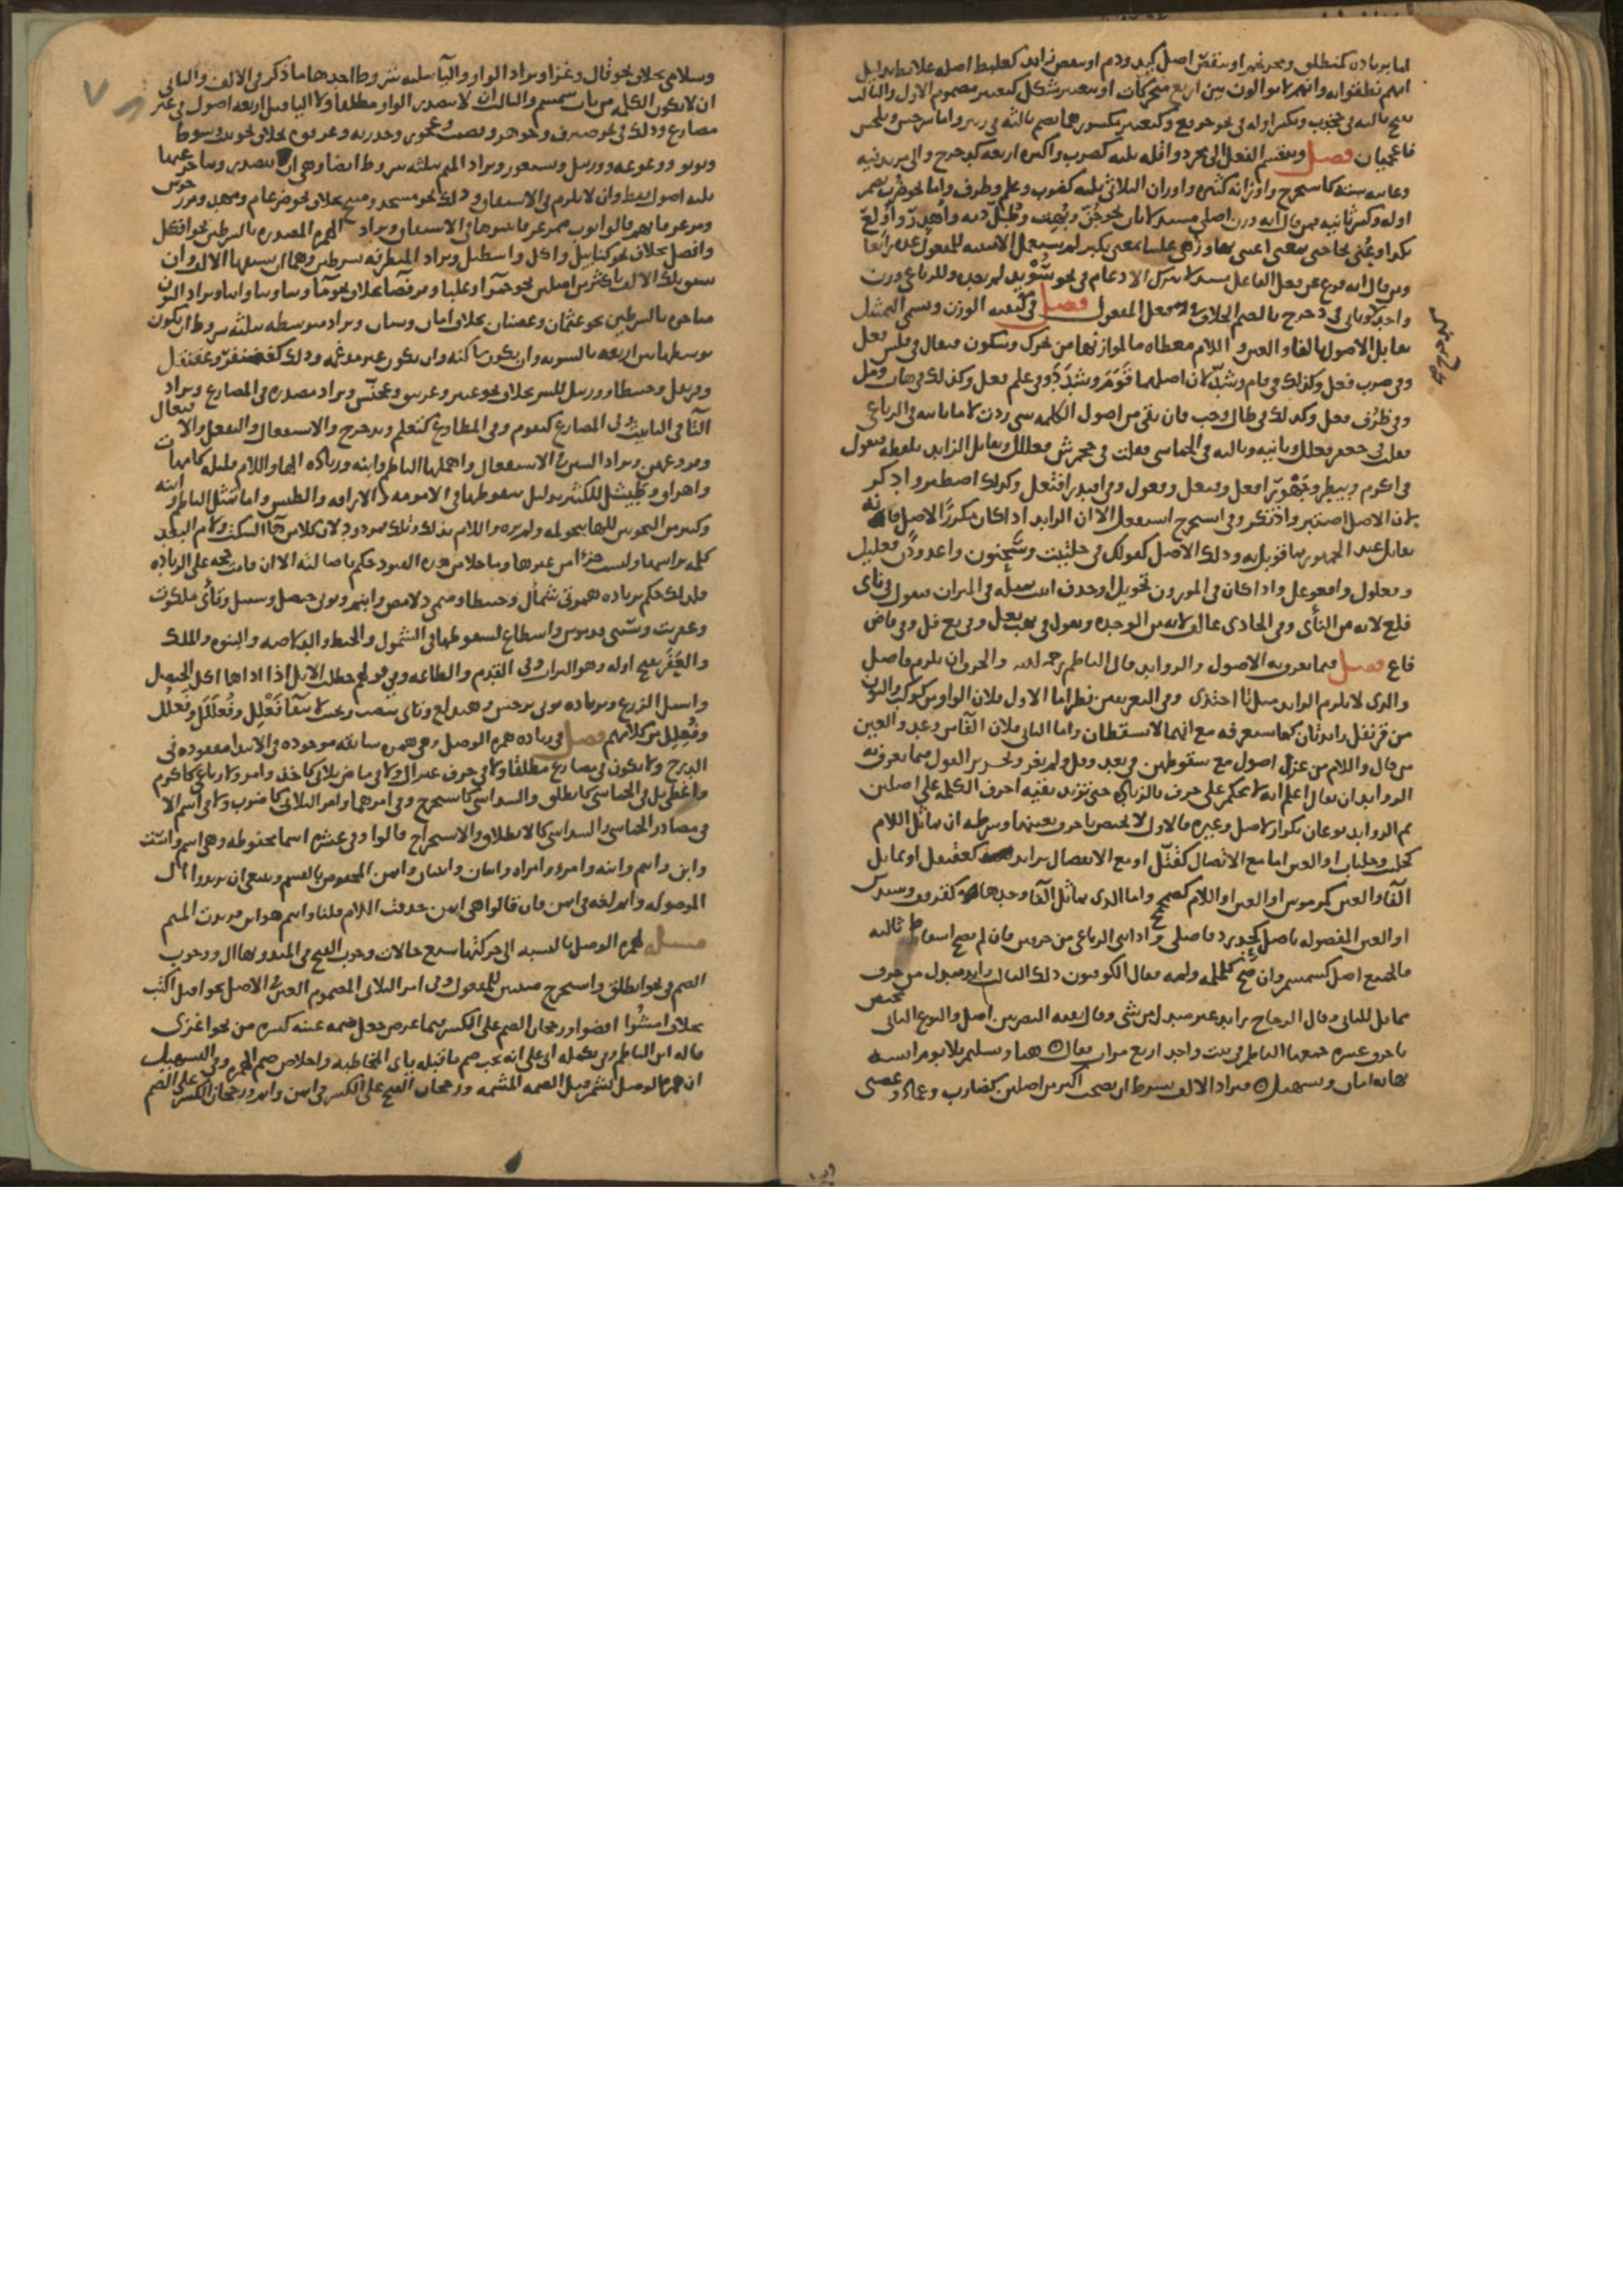 اما بزيادة كمنطلق ومحرنجم او بنقص اصل كيد ودم او بنقص زايد كعلبط اصله علابط بدليل
انهم نطقوا به وانهم لا يوالون بين اربع متحركات او بتغيير شكل كتغيير مضموم الاول والثالث
بفتح ثالثه في جخدب وبكسر اوله في نحو خرفع وكتغيير مكسورهما بضم ثالثه في زئبر واما سرخس وبلخش
فاعجميان فصل وينقسم الفعل الى مجرد واقله ثلثه كضرب واكثره اربعه كدحرج والى مزيد فيه
وغايته سته كاستخرج واوزانه كثيره واوزان الثلاثي ثلثه كضرب وعلم وظرف واما نحو ضرب بضم
اوله وكسر ثانيه فمن قال انه وزن اصلي
ومن قال انه فرع عن فعل الفاعل مستدلا بترك الادغام في نحو سوير لم يعده وللرباعي وزن
واحد كدحرج وياتي في دحرج بالضم الخلاف في فعل المفعول فصل في كيفيه الوزن ويسمى التمثيل
تقابل الاصول بالفا والعين واللام معطاه ما لموازنها من تحرك وسكون فيقال في فلس فعل
وفي ضرب فعل وكذلك في قام وشد لان اصلهما قوم وشدد وفي علم فعل وكذلك في هاب ومل
وفي ظرف فعل وكذلك في طال وحب فان بقي من اصول الكلمه شي زدت لاما ثانيه في الرباعي
فقلت في جعفر فعلل وثانيه وثالثه في الخماسي فقلت في جحمرش فعللل ويقابل الزايد بلفظه فيقول
في اكرم وبيطر وجهور افعل وفيعل وفعول وفي اقتدر افتعل وكذلك اصطبر وادكر
لان الاصل اصتبر واذتكر وفي استخرج استفعل الا ان الزايد اذا كان تكرارا لاصل فانه
يقابل عند الجمهور بما قوبل به ذلك الاصل كقولك في حلتيت وسحنون واغدودن فعليل
وفعلول وافعوعل واذا كان في الموزون تحويل او حذف اتيت بمثله في الميزان فيقول في ناى
فلع لانه من الناى وفي الحادي عالف لانه من الوحده ويقول في يهب يعل وفي بع فل وفي قاض
فاع فصل فيما تعرف به الاصول والزوايد قال الناظم رحمه الله والحرف ان يلزم فاصل
والذي لا يلزم الزايد مثل تا احتذي وفي التعريفين نظر اما الاول فلان الواو من كوكب والنون
من قرنفل زايدتان كما ستعرفه مع انهما لا يسقطان واما الثاني فلان الفا من وعد والعين
من قال واللام من غزا اصول مع سقوطهن في يعد وقل ولم يغز وتحرير القول فيما تعرف به
الزوايد ان يقال اعلم انه لا يحكم على حرف بالزياده حتى تزيد بقيه احرف الكلمه على اصلين
ثم الزوايد نوعان تكرار لاصل وغيره فالاول لا يختص باحرف بعينها وشرطه ان يماثل اللام
كجلبب وجلباب او العين اما مع الاتصال كقتل او مع الانفصال بزايد كعقنقل او يماثل
الفا والعين كمرمريس او العين واللام كصمحمح واما الذي يماثل الفا وحدها كقرقف وسندس
او العين المفصوله باصل كحدرد فاصلي واذا بني الرباعي من حرفين فان لم يصح اسقاط ثالثه
فالجميع اصل كسمسم وان صح كلملمه ولمه فقال الكوفيون ذلك الثالث زايد مبدل من حرف
مماثل للثاني وقال الزجاج زايد غير مبدل من شي وقال بقيه البصريين اصل والنوع الثاني مختص
باحرف عشره جمعها الناظم في بيت واحد اربع مرات فقال هنا وتسليم تلا يوم انسه
نهايه امان وتسهيل فتزاد الالف بشرط ان تصحب اكثر من اصلين كضارب وعماد وغضبى
وسلامى بخلاف نحو قال وغزا وتزاد الواو واليا بثلثه شروط احدها ما ذكر في الالف والثاني
ان لا تكون الكلمه من باب سمسم والثالث ان لا تتصدر الواو مطلقا ولا اليا قبل اربعه اصول في غير
مضارع وذلك في نحو صيرف وجوهر وقضيب وعجوز وحذريه وعرقوه بخلاف نحو بيت وسوط
ويويو ووعوعه وورنتل ويستعور وتزاد الميم بثلثه شروط ايضا وهي ان تتصدر ويتاخر عنها
ثلثه اصول فقط وان لا تلزم في الاشتقاق وذلك نحو مسجد ومنبج بخلاف نحو ضرغام ومهد ومرزجوش
ومرعز فانهم قالوا ثوب ممرعز فاثبتوها في الاشتقاق وتزاد الهمزه المصدره بالشرطين نحو افكل
وافضل بخلاف نحو كنابيل واكل واصطبل وتزاد المتطرفه بشرطين وهما ان تسبقها الالف وان
تسبق تلك الالف باكثر من اصلين نحو حمرا وعلبا وقرفصا بخلاف نحو ما وشا وبنا وابنا وتزاد النون
متاخره بالشرطين نحو عثمان وغضبان بخلاف امان وسنان وتزاد متوسطه بثلثه شروط ان يكون
توسطها بين اربعه بالسويه وان تكون ساكنه وان تكون غير مدغمه وذلك كغضنفر وعقنقل
وقرنفل وحبنطا وورنتل بخلاف عنبر وغرنيق وعجنس وتزاد مصدره في المضارع وتزاد
التا في التانيث وفي المضارع كتقوم وفي المطاوع كتعلم وتدحرج والاستفعال والتفعل والافتعال
وفروعهن وتزاد السين في الاستفعال واهملها الناظم وابنه وزياده الها واللام قليله كامهات
واهراق وطيسل للكثير بدليل سقوطها في الامومه والاراقه والطيس واما تمثيل الناظم وابنه
وكثير من النحويين للها بنحو لمه ولم تره واللام بذلك وتلك فمردود لان كلا من ها السكت ولام البعد
كلمه براسها وليست جزا من غيرها وما خلا من هذه القيود حكم باصالته الا ان قامت حجه على الزياده
فلذلك حكم بزياده همزتي شمال وحبنطا وميمي دلامص وابنم ونوني حنظل وسنبل وتاي ملكوت
وعفريت وسيني قدموس واسطاع لسقوطها في الشمول والحبط والدلاصه والبنوه والملك
والعفر بفتح اوله وهو التراب وفي القدم والطاعه وفي قولهم حظلت الابل اذا اذاها اكل الحنظل
واسبل الزرع وبزياده نوني نرجس وهندلع وتاي تنضب وتخيب لانتفا فعلل وفعلل وفعلل
وفعلل من كلامهم فصل في زياده همزه الوصل وهي همزه سابقه موجوده في الابتدا مفقوده في
الدرج ولا تكون في مضارع مطلقا ولا في حرف غير ال ولا في ماض ثلاثي كاخذ وامر ولا رباعي كاكرم
واعطى بل في الخماسي كانطلق والسداسي كاستخرج وفي امرهما وامر الثلاثي كاضرب ولا في اسم الا
في مصادر الخماسي والسداسي كالانطلاق والاستخراج قالوا وفي عشره اسما محفوظه وهي اسم واست
وابن وابنم وابنه وامرؤ وامراه واثنان واثنتان وايمن المخصوص بالقسم وينبغي ان يزيدوا ال
الموصوله وايم لغه في ايمن فان قالوا هي ايمن حذفت اللام قلنا وابنم هو ابن فزيدت الميم
مسله لهمزه الوصل بالنسبه الى حركتها سبع حالات وجوب الفتح في المبدو بها ال ووجوب
الضم في نحو انطلق واستخرج مبنيين للمفعول وفي امر الثلاثي المضموم العين في الاصل نحو اقتل اكتب
بخلاف امشوا اقضوا ورجحان الضم على الكسر فيما عرض جعل ضمه عينه كسره من نحو اغزي
قاله ابن الناظم وفي تكمله ابي علي انه يجب ضم ما قبله ياي المخاطبه واخلاص ضم الهمزه وفي التسهيل
ان همزه الوصل تشم قبل الضمه المشمه ورجحان الفتح على الكسر في ايمن وايم ورجحان الكسر على الضم